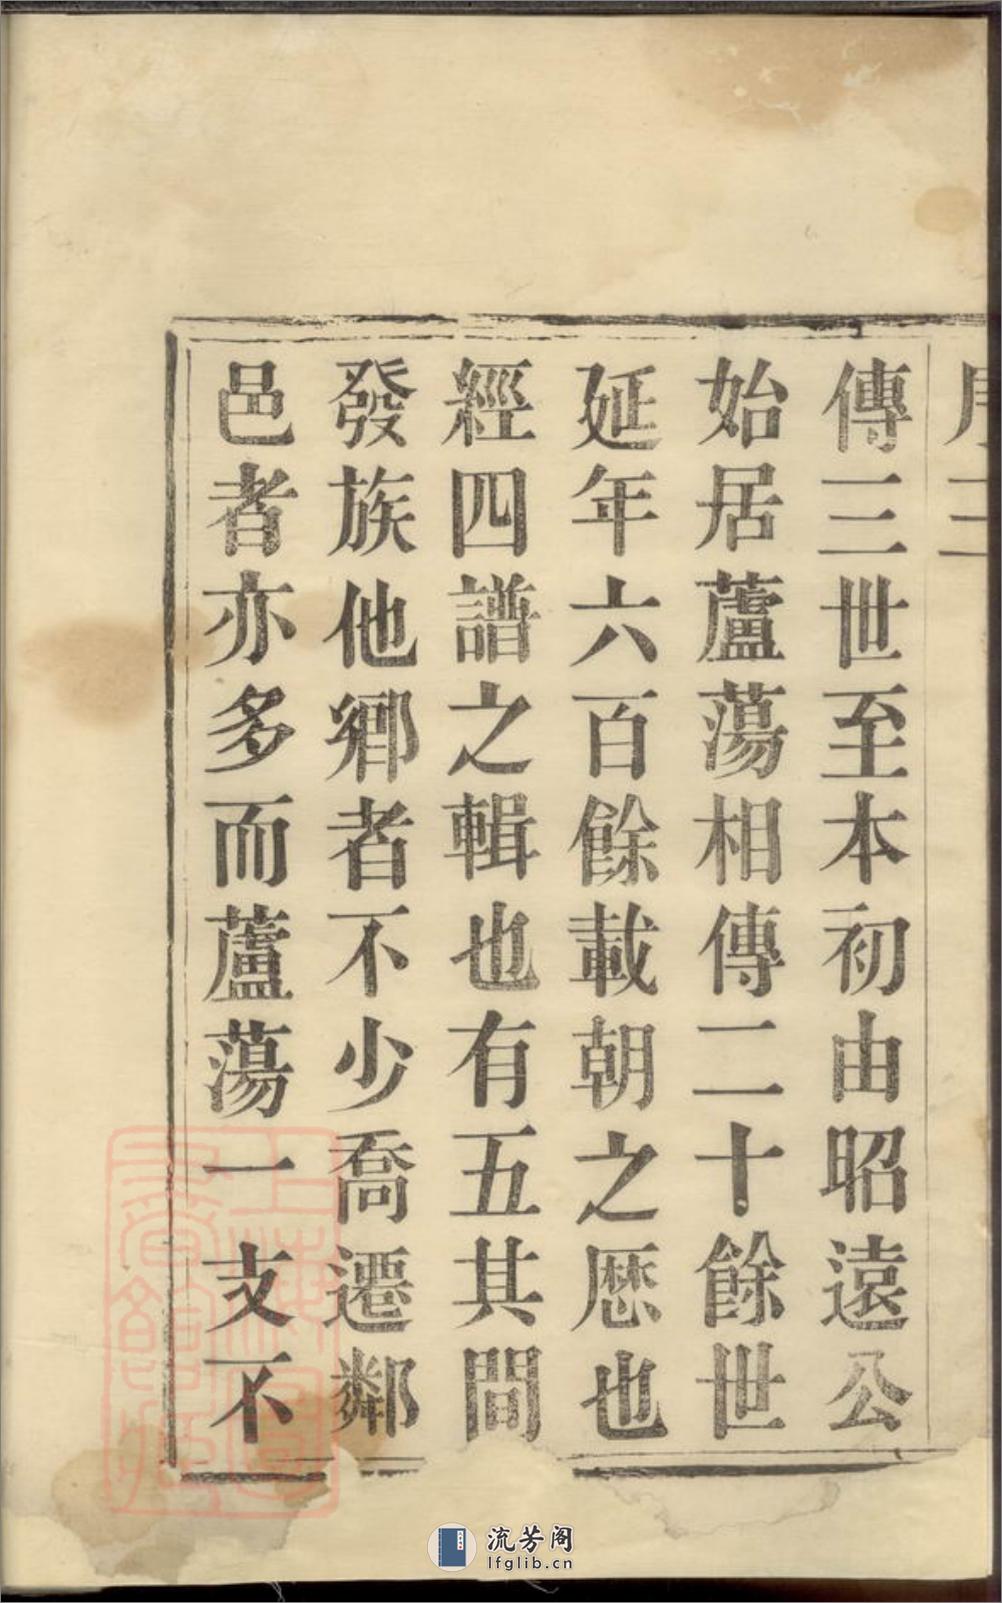 傳三世至本初由昭遠公
始居蘆蕩相傳二十餘世
延年六百餘載朝之厯也
經四譜之輯也有五其間
發族他鄉者不少喬遷鄰
邑者亦多而蘆蕩一支不
上海圖書館藏
流芳阁
lfglib.cn